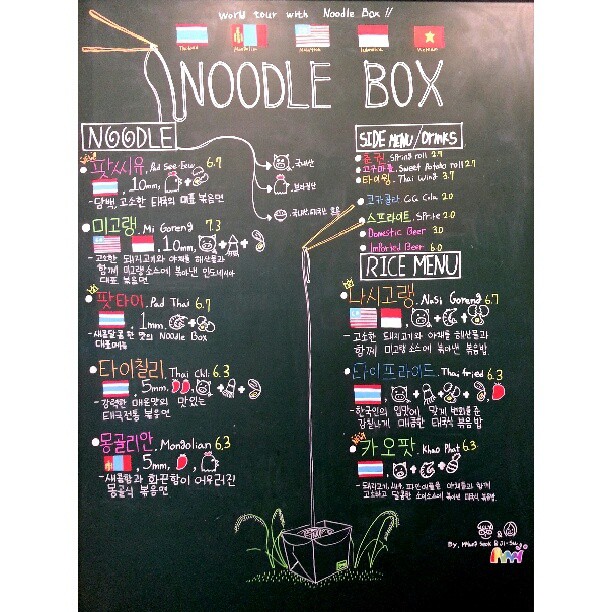 World tour with Noodle Box !!
Thailand
Mongolian
Malaysia
Indonesia
Vietnam
NOODLE BOX
NOODLE
팟씨유. Pad See Eew 6.7
10mm,
-담백, 고소한 태국의 대표 볶음면
미고랭. Mi Goreng 7.3
10mm,
-고소한 돼지고기와 야채를 해산물과
함께 미고랭소스에 볶아낸 인도네시아
대표 볶음면
팟타이. Pad Thai 6.7
1mm.
-새콤달콤한 맛의 Noodle Box
대표메뉴
타이칠리. Thai Chi. 6.3
5mm.
-강력한 매운맛의 맛있는
태국전통 볶음면
몽골리안. Mongolian 6.3
5mm,
-새콤함과 화끈함이 어우러진
몽골식 볶음면
:국내산
SIDE MENU/Drinks
춘권. Spring roll 2.7
고구마롤. Sweet Potato roll 2.7
타이윙. Thai Wing 3.7
코카콜라. Coca Cola 2.0
스프라이트. Sprite 2.0
Domestic Beer 3.0
Imported Beer 6.0
RICE MENU
나시고랭. Nasi Goreng 6.7
-고소한 돼지고기와 야채를 해산물과
함께 미고랭소스에 볶아낸 볶음밥.
타이프라이드. Thai fried 6.3
-한국인의 입맛에 맞게 변화를 준
감칠나게 매콤한 태국식 볶음밥
카오팟. Khao Phat 6.3